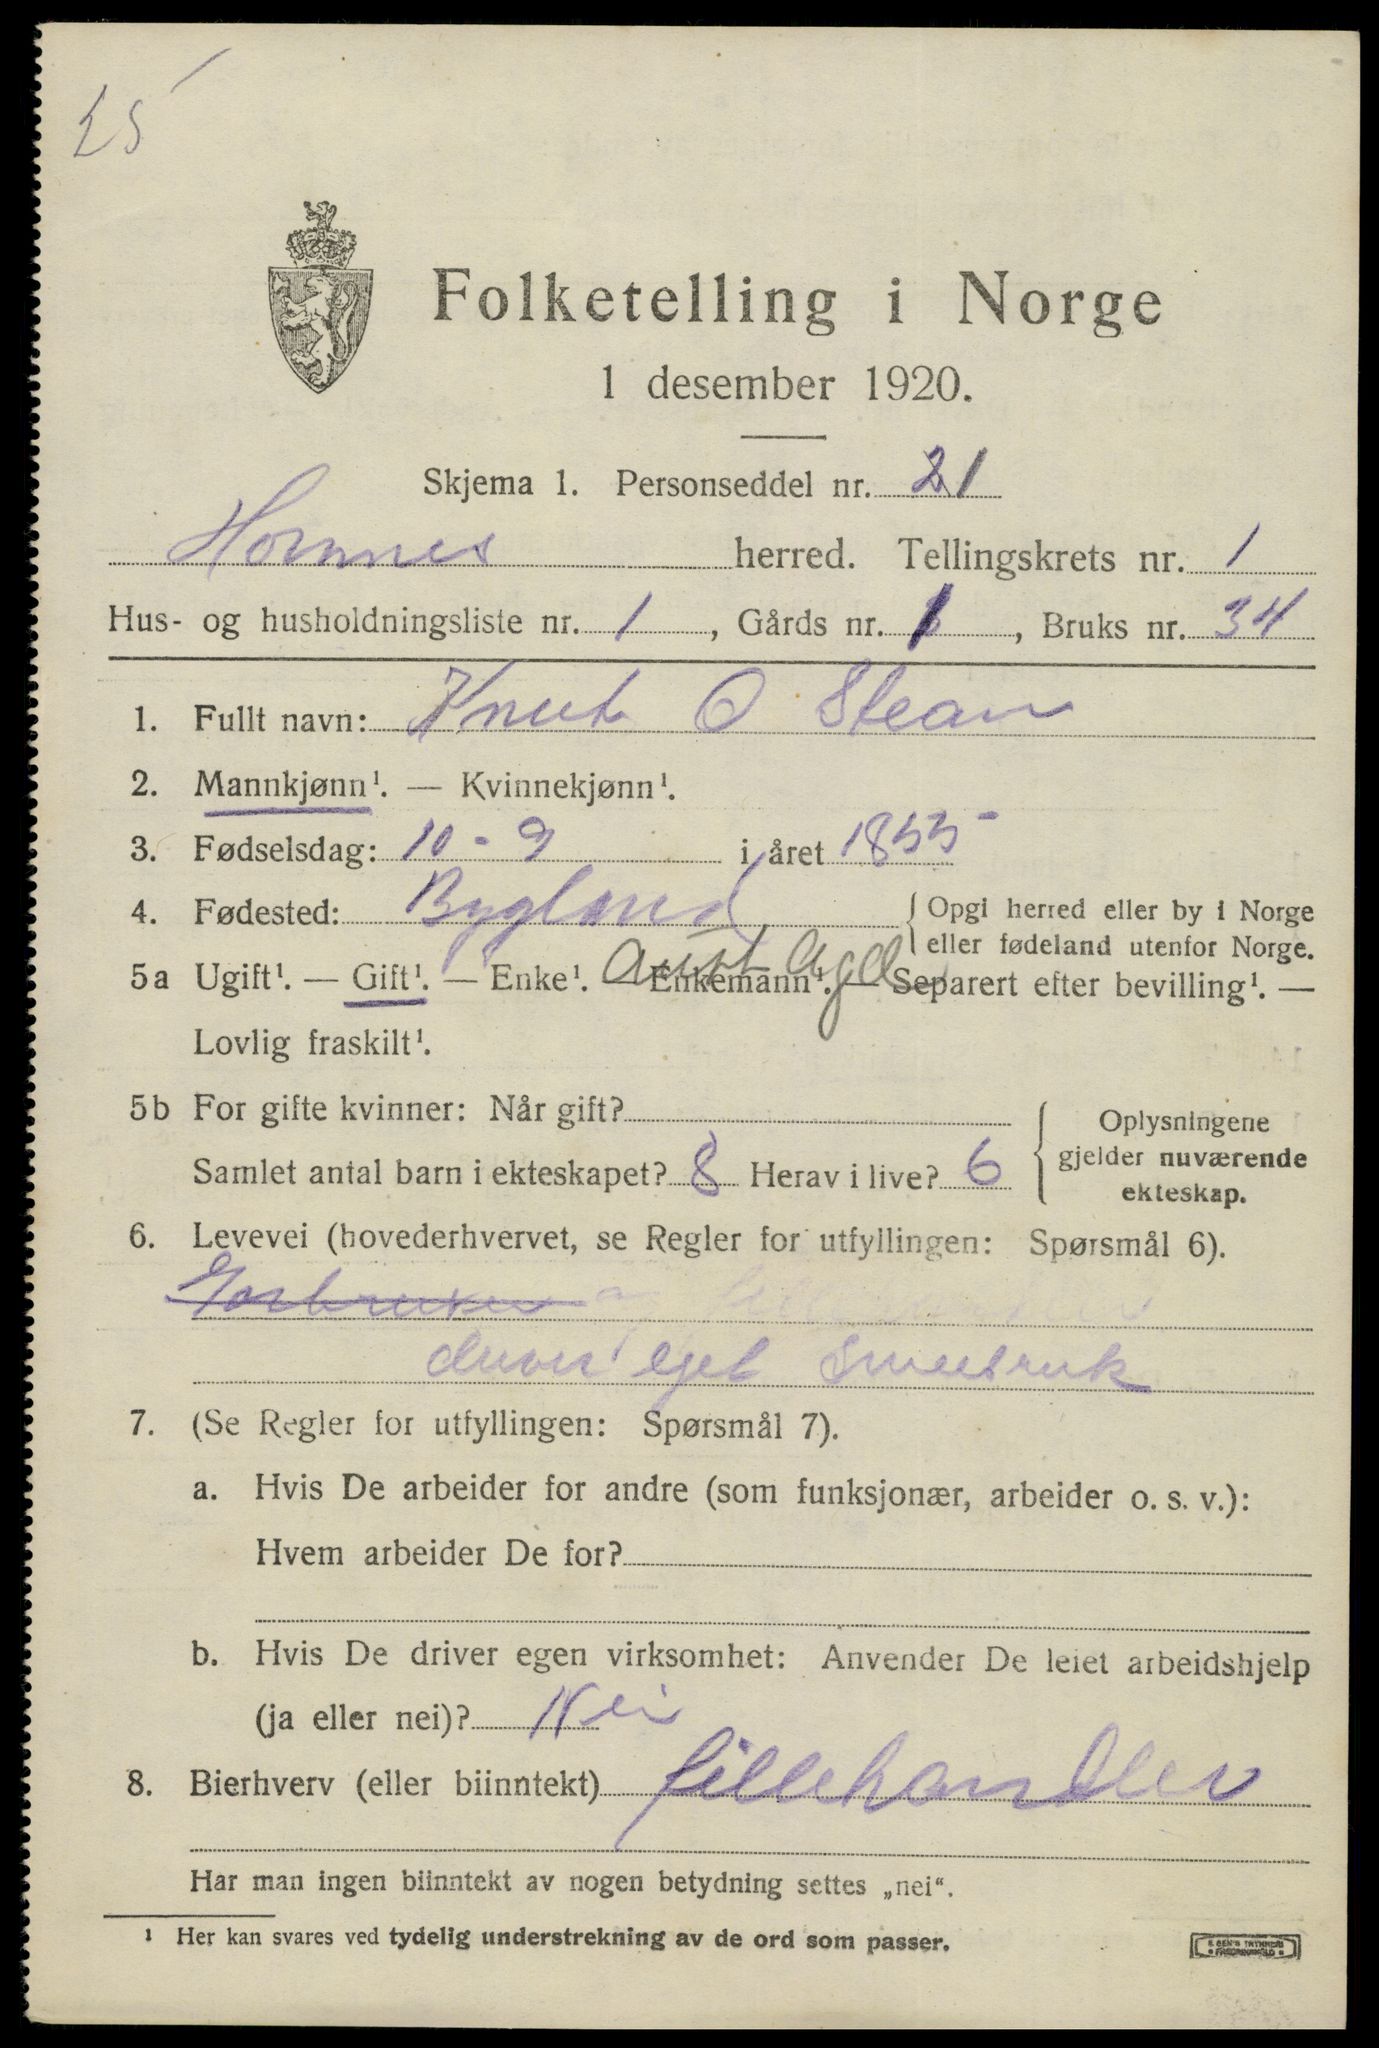 25
Folketelling i Norge
1 desember 1920.
Skjema 1. Personseddel nr. 21
Hornnes herred. Tellingskrets nr. 1
Hus- og husholdningsliste nr. 1, Gårds nr. 1, Bruks nr. 34
1. Fullt navn: Knut O Stean
2. Mannkjønn¹. — Kvinnekjønn¹.
3. Fødselsdag: 10 - 9 i året 1855
4. Fødested: Bygland { Opgi herred eller by i Norge
eller fødeland utenfor Norge.
Aust Agd
5a Ugift¹. — Gift¹. — Enke¹. — Enkemann¹. — Separert efter bevilling¹. —
Lovlig fraskilt¹.
5b For gifte kvinner: Når gift?
Samlet antal barn i ekteskapet? 8 Herav i live? 6
{ Oplysningene
gjelder nuværende
ekteskap.
6. Levevei (hovederhvervet, se Regler for utfyllingen: Spørsmål 6).
Garbruker og
driver eget Smaabruk
7. (Se Regler for utfyllingen: Spørsmål 7).
a. Hvis De arbeider for andre (som funksjonær, arbeider o. s. v.):
Hvem arbeider De for?
b. Hvis De driver egen virksomhet: Anvender De leiet arbeidshjelp
(ja eller nei)? Nei
8. Bierhverv (eller biinntekt) fillehandler
Har man ingen biinntekt av nogen betydning settes „nei“.
¹ Her kan svares ved tydelig understrekning av de ord som passer.